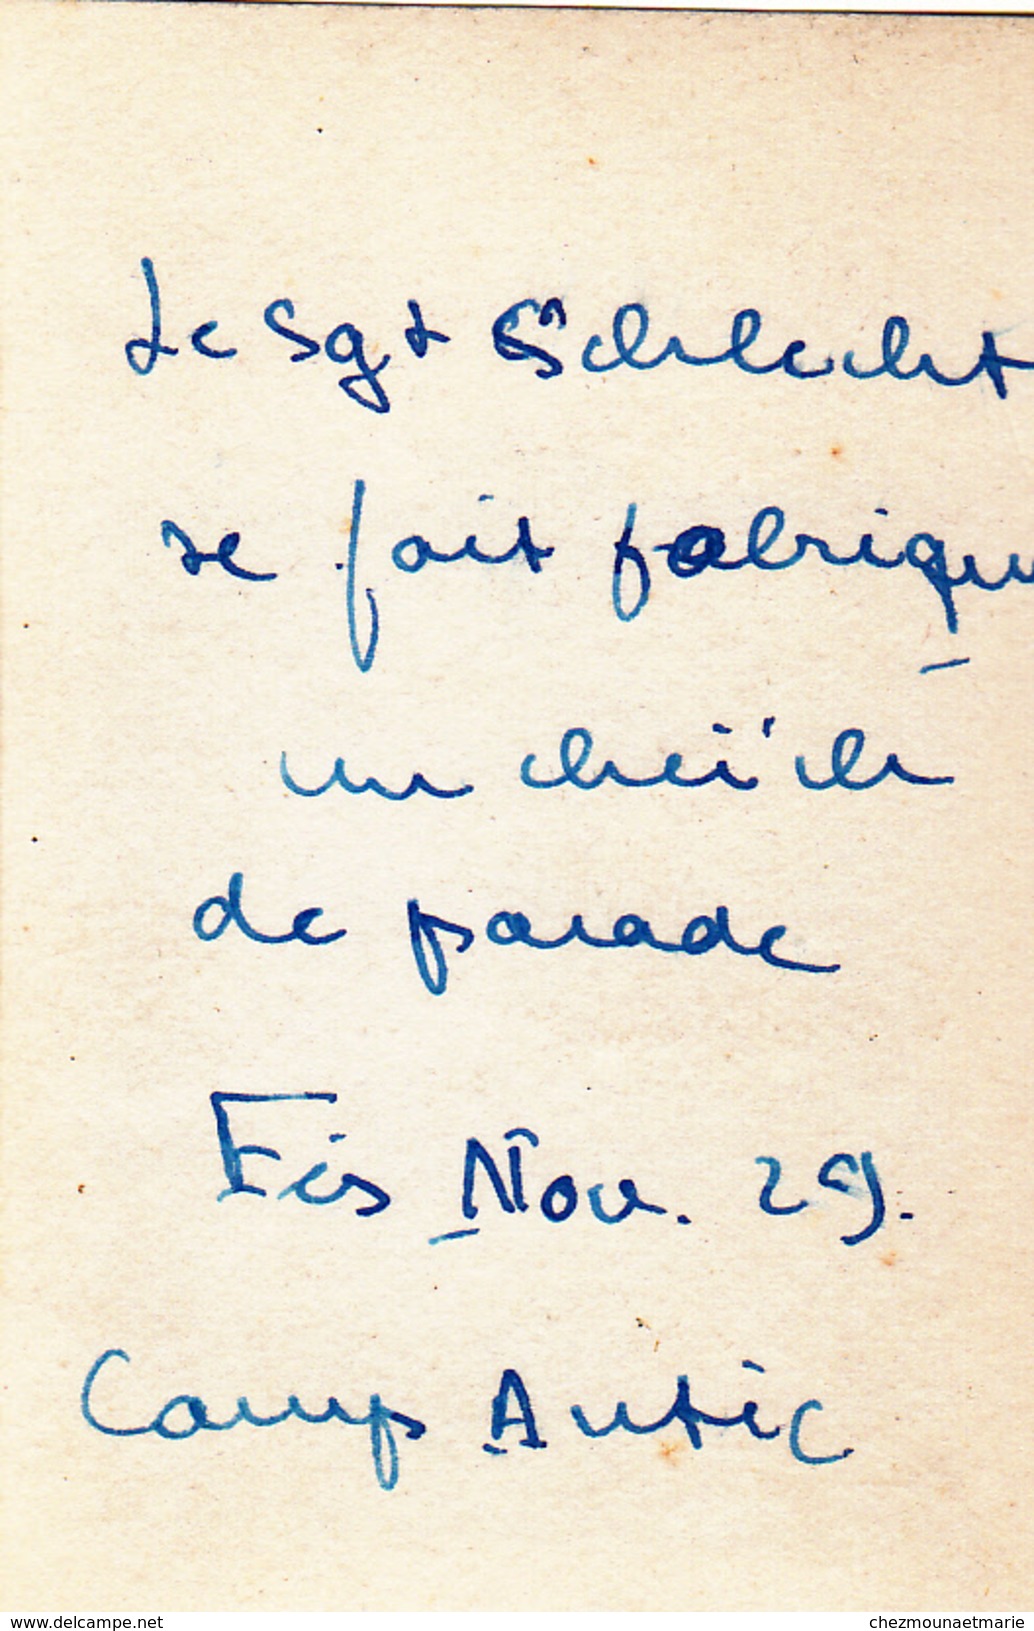 Le Sgt Schlecht
se fait fabriqu
un cheïch
de parade
Fès Nov. 29.
Camp Autic
www.delcampe.net
chezmounaetmarie